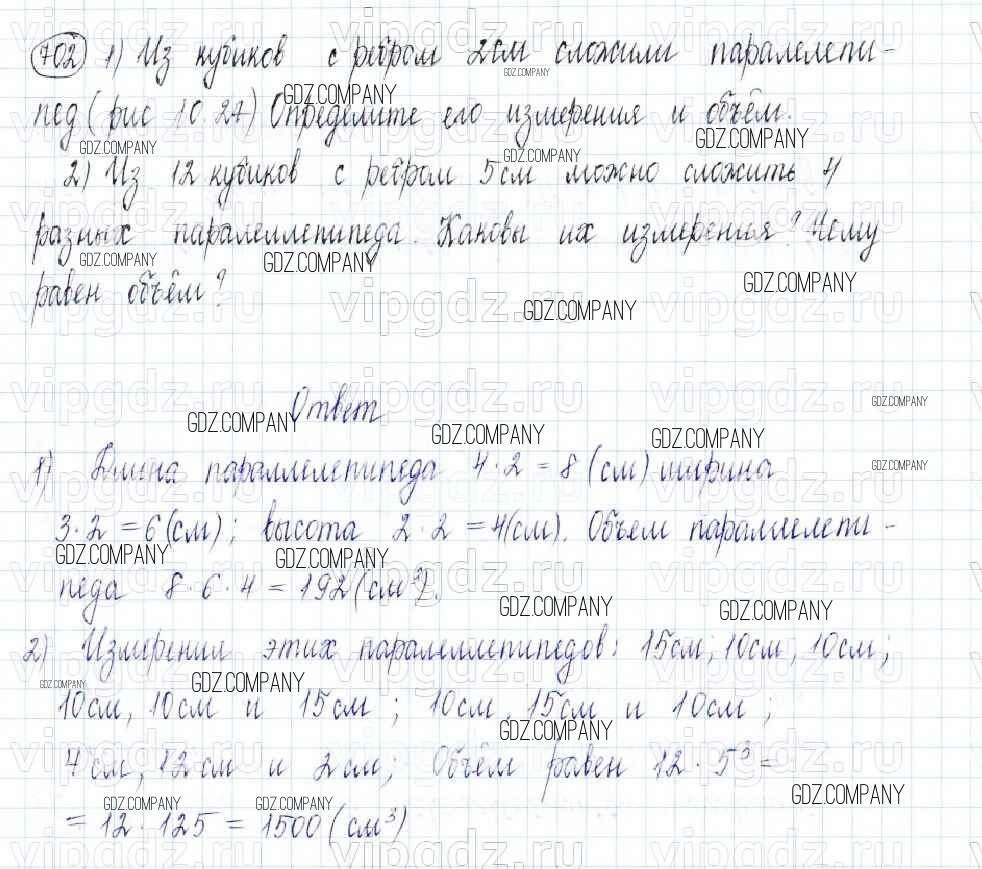 702 1) Из кубиков с ребром 2см сложили паралелепи-
пед (рис 10.27) Определите его измерения и объём.
2) Из 12 кубиков с ребром 5см можно сложить 4
разных параллелепипеда. Каковы их измерения? Чему
равен объём?
Ответ
1) Длина параллелепипеда 4·2 = 8 (см) ширина
3·2 = 6(см); высота 2·2 = 4(см). Объем параллелепи-
педа 8·6·4 = 192(см³).
2) Измерения этих параллелепипедов: 15см, 10см, 10см;
10см, 10см и 15см; 10см, 15см и 10см;
4см, 12см и 2см; Объём равен 12·5³ =
= 12·125 = 1500 (см³)
GDZ.COMPANY
vipgdz.ru